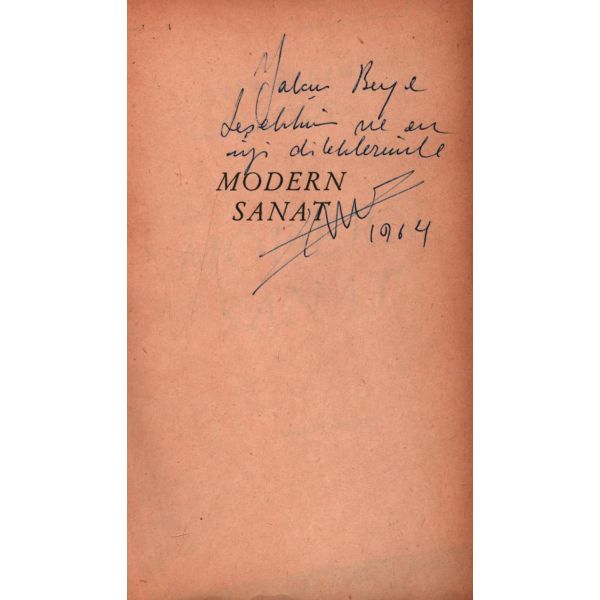 Yalçın Beye
teşekkür ve en
iyi dileklerimle
MODERN
SANAT
1964